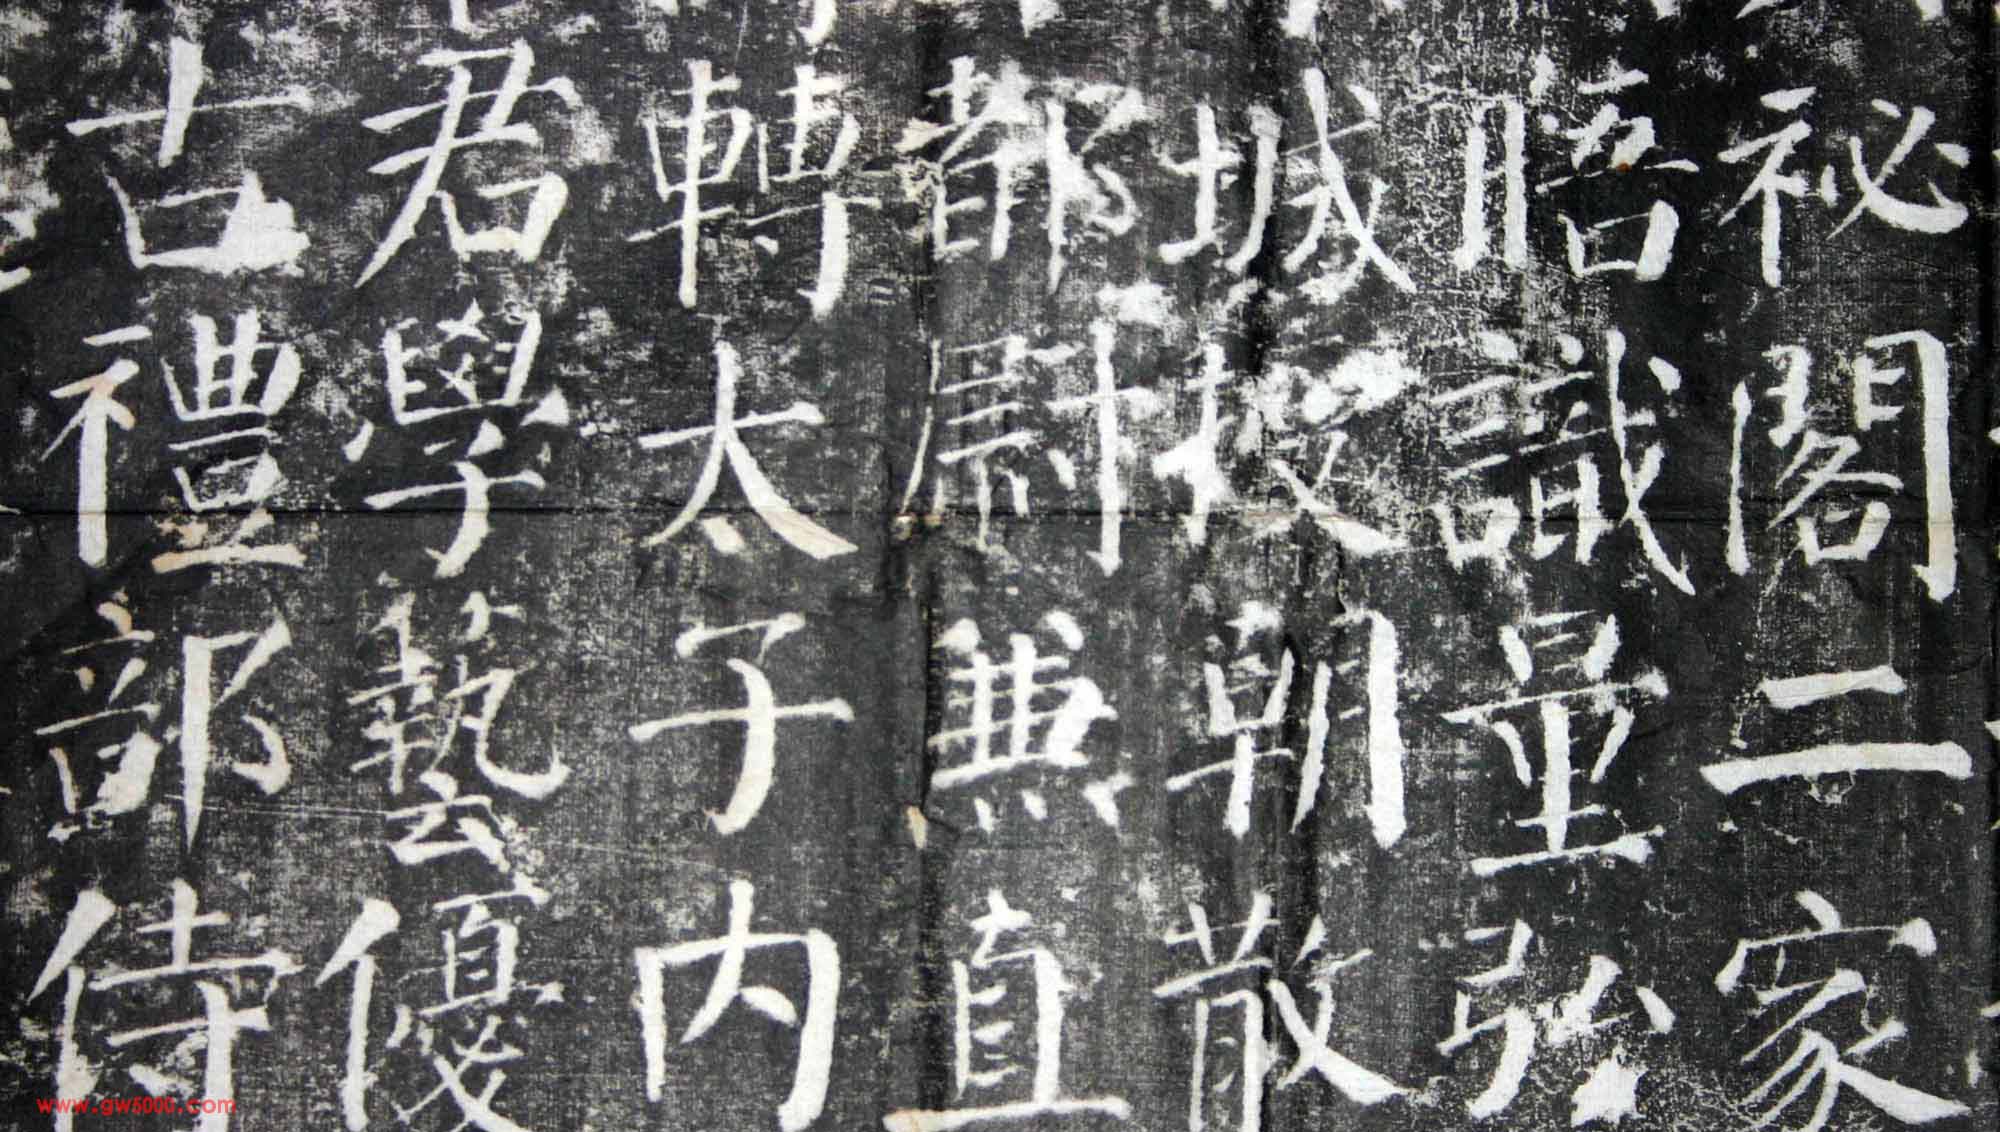 祕閣二家
晤識量弘
城授朝散
都尉兼直
轉太子內
君學藝優
古禮部侍
www.gw5000.com